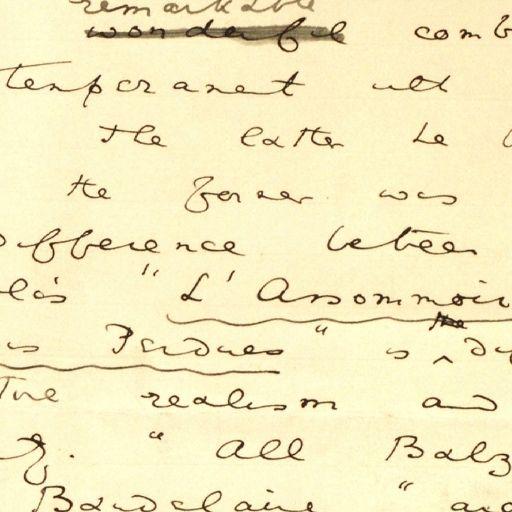 remarkable
wonderful comb
temperament with
the latter he b
the former was
difference between
ola's "L'Assommoir
us Perdues" is the dif
tive realism and
ty. "All Balz
Baudelaire "are